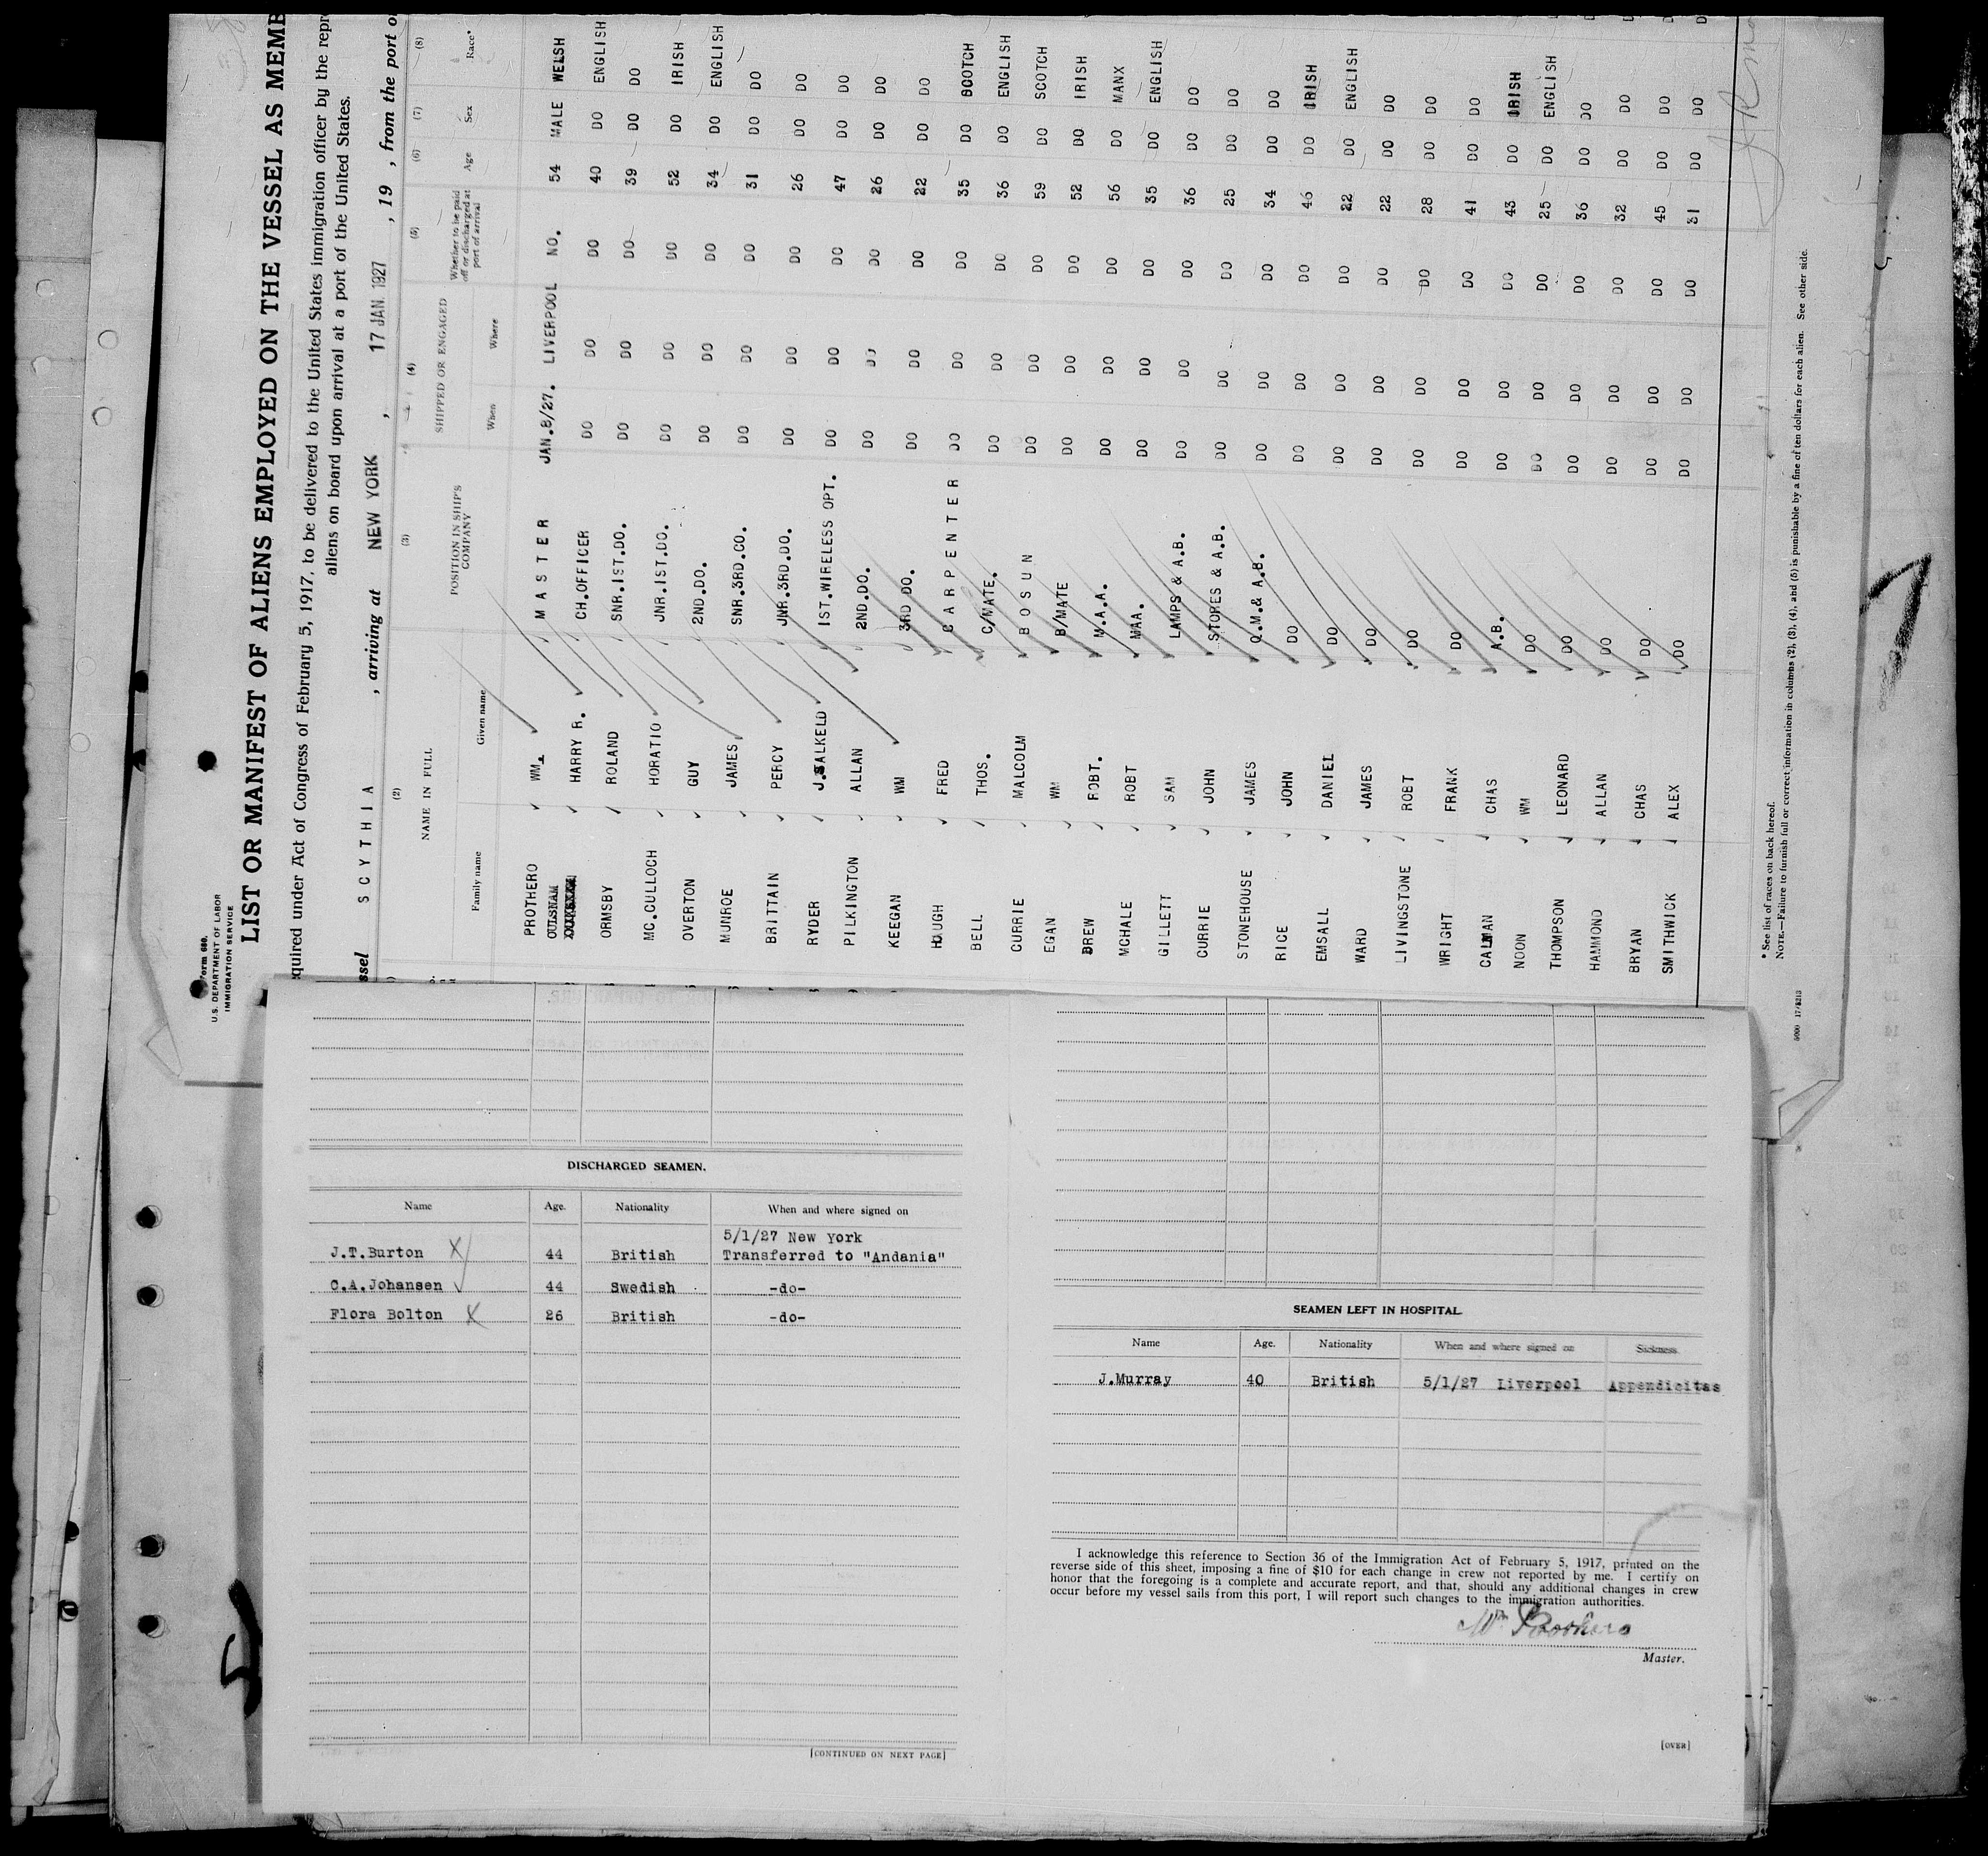 Form 680.
U.S. DEPARTMENT OF LABOR
IMMIGRATION SERVICE
LIST OR MANIFEST OF ALIENS EMPLOYED ON THE VESSEL AS MEMB
equired under Act of Congress of February 5, 1917, to be delivered to the United States immigration officer by the repr
aliens on board upon arrival at a port of the United States.
ssel SCYTHIA , arriving at NEW YORK , 17 JAN. 1927 , 19 , from the port o
(2) (3) (4) (5) (6) (7) (8)
NAME IN FULL POSITION IN SHIP'S COMPANY SHIPPED OR ENGAGED Whether to be paid off or discharged at port of arrival Age Sex Race*
Family name Given name When Where
PROTHERO WM. MASTER JAN.8/27. LIVERPOOL NO. 54 MALE WELSH
OULSNAM HARRY R. CH.OFFICER DO DO DO 40 DO ENGLISH
ORMSBY ROLAND SNR.1ST.DO. DO DO DO 39 DO DO
MC.CULLOCH HORATIO JNR.1ST.DO. DO DO DO 52 DO IRISH
OVERTON GUY 2ND.DO. DO DO DO 34 DO ENGLISH
MUNROE JAMES SNR.3RD.CO. DO DO DO 31 DO DO
BRITTAIN PERCY JNR.3RD.DO. DO DO DO 26 DO DO
RYDER J.SALKELD 1ST.WIRELESS OPT. DO DO DO 47 DO DO
PILKINGTON ALLAN 2ND.DO. DO DO DO 26 DO DO
KEEGAN WM 3RD DO. DO DO DO 22 DO DO
HOUGH FRED CARPENTER DO DO DO 35 DO SCOTCH
BELL THOS. C/MATE. DO DO DO 36 DO ENGLISH
CURRIE MALCOLM BOSUN DO DO DO 59 DO SCOTCH
EGAN WM B/MATE DO DO DO 52 DO IRISH
DREW ROBT. M.A.A. DO DO DO 56 DO MANX
MCHALE ROBT MAA. DO DO DO 35 DO ENGLISH
GILLETT SAM LAMPS & A.B. DO DO DO 36 DO DO
CURRIE JOHN STORES & A.B. DO DO DO 25 DO DO
STONEHOUSE JAMES Q.M.& A.B. DO DO DO 34 DO DO
RICE JOHN DO DO DO DO 46 DO IRISH
EMSALL DANIEL DO DO DO DO 22 DO ENGLISH
WARD JAMES DO DO DO DO 22 DO DO
LIVINGSTONE ROBT DO DO DO DO 28 DO DO
WRIGHT FRANK DO DO DO DO 41 DO DO
CALMAN CHAS A.B. DO DO DO 43 DO IRISH
NOON WM DO DO DO DO 25 DO ENGLISH
THOMPSON LEONARD DO DO DO DO 36 DO DO
HAMMOND ALLAN DO DO DO DO 32 DO DO
BRYAN CHAS DO DO DO DO 45 DO DO
SMITHWICK ALEX DO DO DO DO 31 DO DO
* See list of races on back hereof.
NOTE.—Failure to furnish full or correct information in columns (2), (3), (4), and (5) is punishable by a fine of ten dollars for each alien. See other side.
DISCHARGED SEAMEN.
Name Age. Nationality When and where signed on
5/1/27 New York
J.T.Burton 44 British Transferred to "Andania"
C.A.Johansen 44 Swedish -do-
Flora Bolton 26 British -do-
[CONTINUED ON NEXT PAGE]
SEAMEN LEFT IN HOSPITAL.
Name Age. Nationality When and where signed on Sickness.
J.Murray 40 British 5/1/27 Liverpool Appendicitas
I acknowledge this reference to Section 36 of the Immigration Act of February 5, 1917, printed on the
reverse side of this sheet, imposing a fine of $10 for each change in crew not reported by me. I certify on
honor that the foregoing is a complete and accurate report, and that, should any additional changes in crew
occur before my vessel sails from this port, I will report such changes to the immigration authorities.
Wm Prothero
Master.
[OVER]